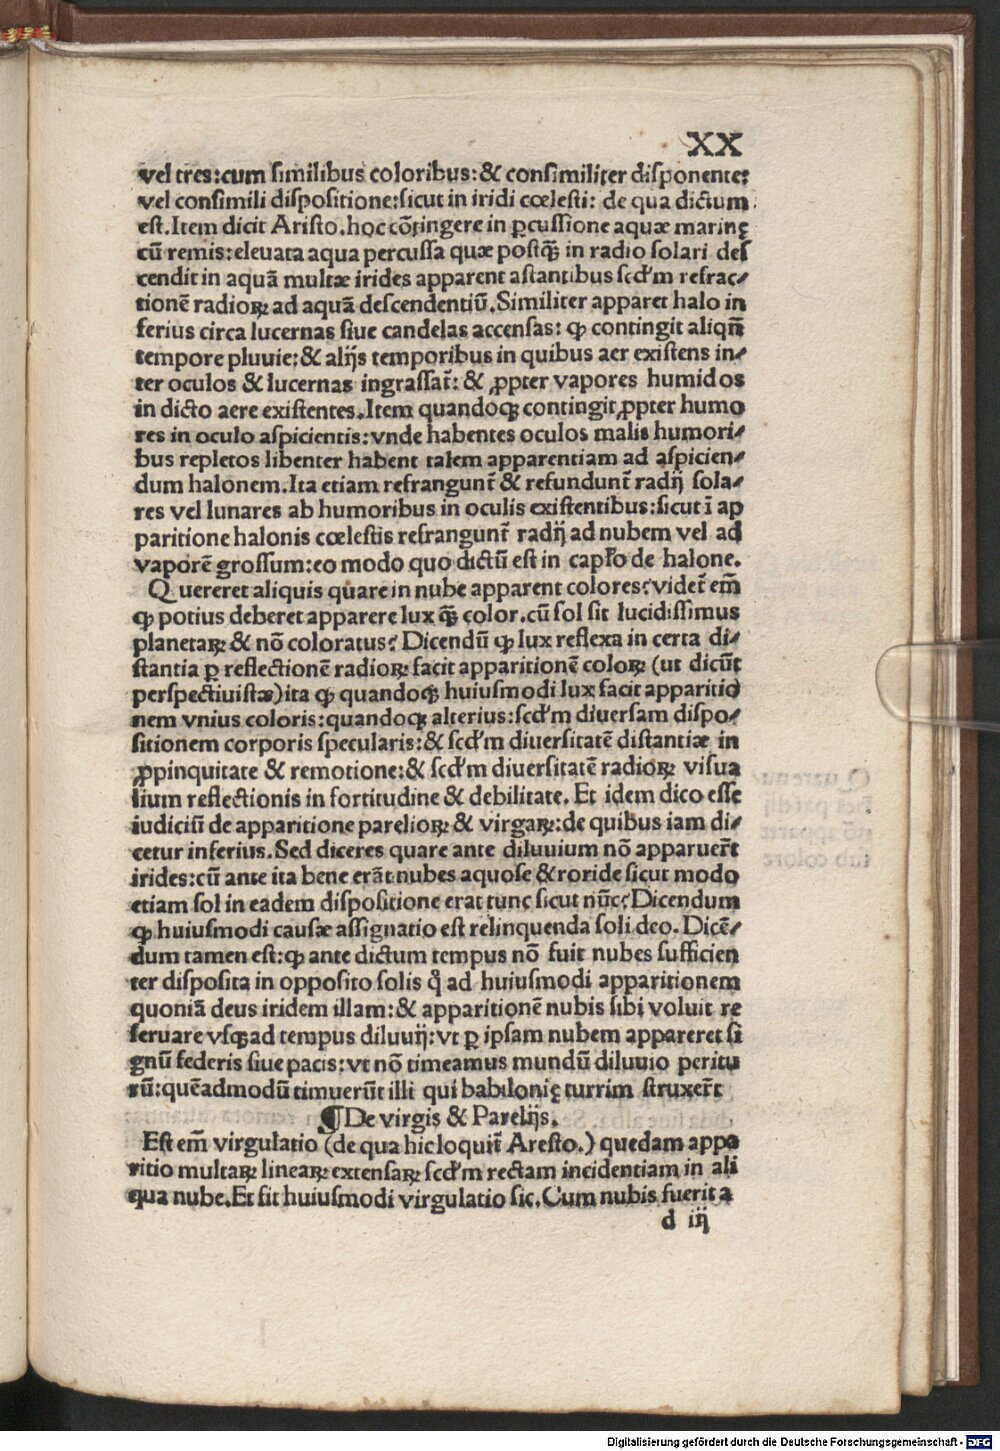 XX
vel tres:cum ſimilibus coloribus:& conſimiliter diſponente:
vel conſimili diſpoſitione:ſicut in iridi cœleſti: de qua dictum
eſt.Item dicit Ariſto.hoc cōtingere in ꝑcuſſione aquæ marinę
cū remis:eleuata aqua percuſſa quæ poſtq̄ in radio ſolari deſ
cendit in aquā multæ irides apparent aſtantibus ſcd'm refrac⸗
tionē radioꝝ ad aquā deſcendentiū.Similiter apparet halo in
ferius circa lucernas ſiue candelas accenſas: ꝙ contingit aliqn̄
tempore pluuie:& alijs temporibus in quibus aer exiſtens in⸗
ter oculos & lucernas ingraſſat̄: & ꝓpter vapores humidos
in dicto aere exiſtentes.Item quandoqꝫ contingit ꝓpter humo
res in oculo aſpicientis:vnde habentes oculos malis humori⸗
bus repletos libenter habent talem apparentiam ad aſpicien⸗
dum halonem.Ita etiam refrangunt̄ & refundunt̄ radij ſola⸗
res vel lunares ab humoribus in oculis exiſtentibus:ſicut ī ap
paritione halonis cœleſtis refrangunt̄ radij ad nubem vel ad
vaporē groſſum:eo modo quo dictū eſt in capło de halone.
Quereret aliquis quare in nube apparent colores?videt̄ em̄
ꝙ potius deberet apparere lux q̄ color.cū ſol ſit lucidiſſimus
planetaꝝ & nō coloratus? Dicendū ꝙ lux reflexa in certa di⸗
ſtantia ꝑ reflectionē radioꝝ facit apparitionē coloꝝ (ut dicūt
perſpectiuiſtæ)ita ꝙ quandoqꝫ huiuſmodi lux facit apparitio
nem vnius coloris:quandoqꝫ alterius:ſcd'm diuerſam diſpo⸗
ſitionem corporis ſpecularis:& ſcd'm diuerſitatē diſtantiæ in
ꝓpinquitate & remotione:& ſcd'm diuerſitatē radioꝝ viſua
lium reflectionis in fortitudine & debilitate. Et idem dico eſſe
iudiciū de apparitione parelioꝝ & virgaꝝ:de quibus iam di⸗
cetur inferius.Sed diceres quare ante diluuium nō apparuer̄t
irides:cū ante ita bene erāt nubes aquoſe & roride ſicut modo
etiam ſol in eadem diſpoſitione erat tunc ſicut nūc?Dicendum
ꝙ huiuſmodi cauſæ aſſignatio eſt relinquenda ſoli deo. Dicē⸗
dum tamen eſt:ꝙ ante dictum tempus nō fuit nubes ſufficien
ter diſpoſita in oppoſito ſolis q̊ ad huiuſmodi apparitionem
quoniā deus iridem illam:& apparitionē nubis ſibi voluit re
ſeruare vſqꝫad tempus diluuij:vt ꝑ ipſam nubem appareret ſi
gnū federis ſiue pacis:vt nō timeamus mundū diluuio peritu
rū:quēadmodū timuerūt illi qui babilonię turrim ſtruxer̄t
¶De virgis & Parelijs.
Eſt em̄ virgulatio (de qua hic loquit̄ Areſto.) quedam appa
ritio multaꝝ lineaꝝ extenſaꝝ ſcd'm rectam incidentiam in ali
qua nube.Et fit huiuſmodi virgulatio ſic.Cum nubis fuerit a
d iij
Digitalisierung gefördert durch die Deutsche Forschungsgemeinschaft - DFG